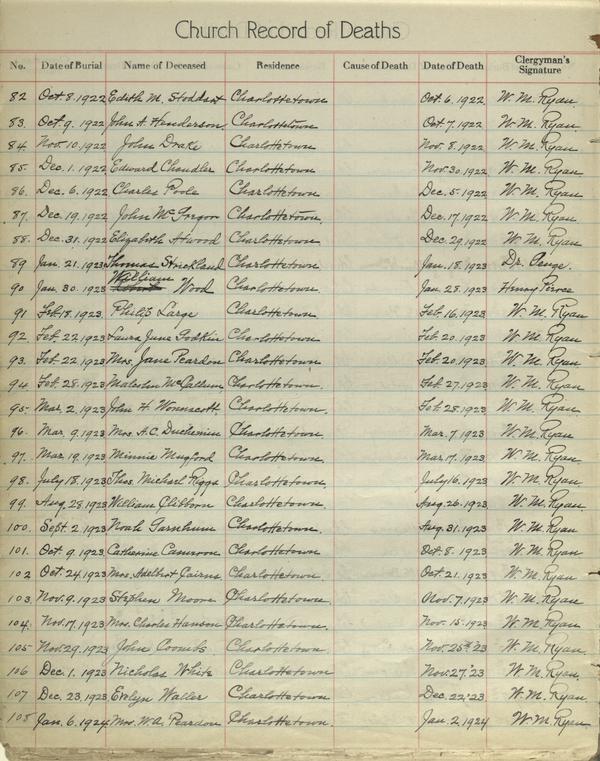 Church Record of Deaths
No. Date of Burial Name of Deceased Residence Cause of Death Date of Death Clergyman's Signature
82 Oct. 8, 1922 Edith M. Stoddart Charlottetown Oct. 6, 1922 W. M. Ryan
83. Oct. 9, 1922 John A. Henderson Charlottetown Oct. 7, 1922 W. M. Ryan
84. Nov. 10, 1922 John Drake Charlottetown Nov. 8, 1922 W. M. Ryan
85. Dec. 1, 1922 Edward Chandler Charlottetown Nov. 30, 1922 W. M. Ryan
86. Dec. 6, 1922 Charles Poole Charlottetown Dec. 5, 1922 W. M. Ryan
87. Dec. 19, 1922 John McGregor Charlottetown. Dec. 17, 1922 W. M. Ryan
88. Dec. 31, 1922 Elizabeth Atwood Charlottetown Dec. 29, 1922 W. M. Ryan
89 Jan. 21, 1923 Thomas Strickland Charlottetown Jan. 18, 1923 Dr.
90 Jan. 30, 1923 William Wood Charlottetown Jan. 28, 1923 Henry Pierce
91 Feb. 18, 1923. Philip Large Charlottetown Feb. 16, 1923 W. M. Ryan
92. Feb. 22, 1923 Laura June Godkin Charlottetown Feb. 20, 1923 W. M. Ryan
93. Feb. 22, 1923 Mrs. Jane Peardon Charlottetown Feb. 20, 1923 W. M. Ryan
94. Feb. 28, 1923 Malcolm McCallum Charlottetown. Feb. 27, 1923 W. M. Ryan
95. Mar. 2, 1923 John H. Wonnacott Charlottetown. Feb. 28, 1923 W. M. Ryan
96. Mar. 9, 1923 Mrs. A.C. Duchemin Charlottetown Mar. 7, 1923 W. M. Ryan
97. Mar. 19, 1923 Minnie Mugford Charlottetown Mar. 17, 1923 W. M. Ryan
98. July 18, 1923 Thos. Michael Riggs Charlottetown July 16, 1923 W. M. Ryan
99. Aug. 28, 1923 William Charlottetown. Aug. 26, 1923 W. M. Ryan
100. Sept. 2, 1923 Noah Garnhum Charlottetown. Aug. 31, 1923 W. M. Ryan
101. Oct. 9, 1923 Catherine Cameron Charlottetown. Oct. 8, 1923 W. M. Ryan
102 Oct. 24, 1923 Mrs. Cairns Charlottetown. Oct. 21, 1923 W. M. Ryan
103. Nov. 9, 1923 Stephen Moore Charlottetown. Nov. 7, 1923 W. M. Ryan
104. Nov. 17, 1923 Mrs. Charles Hanson Charlottetown. Nov. 15, 1923 W. M. Ryan
105 Nov. 29, 1923 John Coombs Charlottetown. Nov. 25th '23 W. M. Ryan
106 Dec. 1, 1923 Nicholas White Charlottetown Nov. 27, '23 W. M. Ryan.
107 Dec. 23, 1923 Evelyn Waller Charlottetown Dec. 22, '23 W. M. Ryan
108 Jan. 6, 1924 Mrs. W.A. Peardon Charlottetown. Jan. 2, 1924 W. M. Ryan